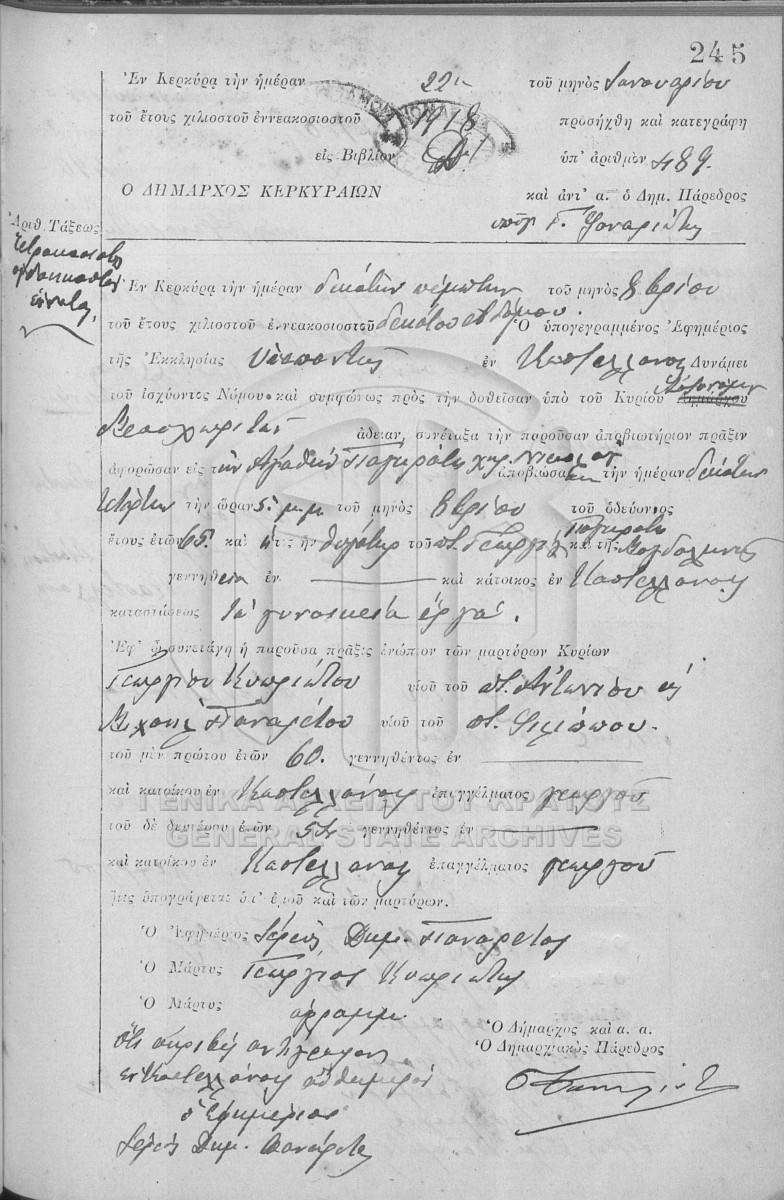 245
Ἐν Κερκύρᾳ τὴν ἡμέραν 22 τοῦ μηνὸς Ἰανουαρίου
τοῦ ἔτους χιλιοστοῦ ἐννεακοσιοστοῦ 1918 προσήχθη καὶ κατεγράφη
εἰς Βιβλίον ὑπ' ἀριθμὸν 489.
Ο ΔΗΜΑΡΧΟΣ ΚΕΡΚΥΡΑΙΩΝ καὶ ἀντ' α. ὁ Δημ. Πάρεδρος
Ἀριθ. Τάξεως
Ἐν Κερκύρᾳ τὴν ἡμέραν δεκάτην πέμπτην τοῦ μηνὸς 8βρίου
τοῦ ἔτους χιλιοστοῦ ἐννεακοσιοστοῦ δεκάτου ἑβδόμου. Ὁ ὑπογεγραμμένος Ἐφημέριος
τῆς Ἐκκλησίας ἐν Καστελλάνοις Δυνάμει
τοῦ ἰσχύοντος Νόμου καὶ συμφώνως πρὸς τὴν δοθεῖσαν ὑπὸ τοῦ Κυρίου Δημάρχου
ἄδειαν, συνέταξα τὴν παροῦσαν ἀποβιωτήριον πρᾶξιν
ἀφορῶσαν εἰς τὴν Παγκράτη χηρ. ἀποβιώσασαν τὴν ἡμέραν δεκάτην
τετάρτην τὴν ὥραν 5 μ.μ. τοῦ μηνὸς 8βρίου τοῦ ὁδεύοντος
ἔτους ἐτῶν 65 καὶ θυγάτηρ τοῦ ποτ. Γεωργίου Παγκράτη καὶ τῆς Μαγδαληνῆς
γεννηθεῖσα ἐν καὶ κάτοικος ἐν Καστελλάνοις
καταστάσεως τὰ γυναικεῖα ἔργα.
Ἐφ' ᾧ συνετάγη ἡ παροῦσα πρᾶξις ἐνώπιον τῶν μαρτύρων Κυρίων
Γεωργίου Κυπριώτου υἱοῦ τοῦ ποτ. Ἀντωνίου καὶ
Μιχαὴλ Παναρέτου υἱοῦ τοῦ ποτ. Φιλίππου.
τοῦ μὲν πρώτου ἐτῶν 60. γεννηθέντος ἐν
καὶ κατοίκου ἐν Καστελλάνοις ἐπαγγέλματος γεωργοῦ
ΓΕΝΙΚΑ ΑΡΧΕΙΑ ΤΟΥ ΚΡΑΤΟΥΣ
τοῦ δὲ δευτέρου ἐτῶν γεννηθέντος ἐν
GENERAL STATE ARCHIVES
καὶ κατοίκου ἐν Καστελλάνοις ἐπαγγέλματος γεωργοῦ
ἥτις ὑπογράφεται ὑπ' ἐμοῦ καὶ τῶν μαρτύρων.
Ὁ Ἐφημέριος Ἱερεὺς Δημ. Πανάρετος
Ὁ Μάρτυς Γεώργιος Κυπριώτης
Ὁ Μάρτυς
Ὅτι ἀκριβὲς ἀντίγραφον
Ὁ Δήμαρχος καὶ α. α.
ἐν Καστελλάνοις αὐθημερόν
Ὁ Δημαρχιακὸς Πάρεδρος
ὁ Ἐφημέριος
Ἱερεὺς Δημ. Πανάρετος